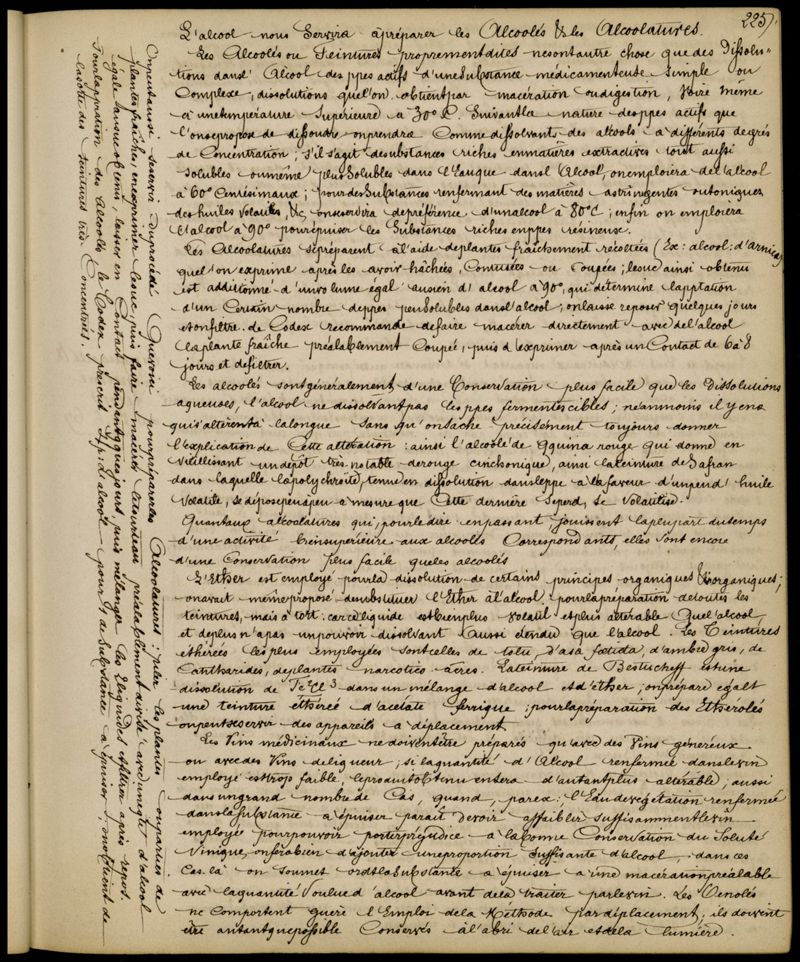 225
L'alcool nous servira à préparer les Alcoolés & les Alcoolatures.
Les Alcoolés ou Teintures proprement dites ne sont autre chose que des Dissolu-
tions dans l'Alcool des ppes actifs d'une substance médicamenteuse simple ou
Complexe, dissolutions que l'on obtient par macération ou digestion, voire même
à une température supérieure à 30° C. Suivant la nature des ppes actifs que
l'on se propose de dissoudre on prendra comme dissolvants des alcools à différents degrés
de concentration; s'il s'agit de substances riches en matières extractives tout aussi
solubles ou même plus solubles dans l'Eau que dans l'Alcool, on emploiera de l'alcool
à 60° Centésimaux; pour des substances renfermant des matières astringentes ou toniques
des huiles volatiles, &c, on se servira de préférence d'un alcool à 80° C; enfin on emploiera
l'alcool à 90° pour épuiser les substances riches en ppes résineux.
Les Alcoolatures se préparent à l'aide de plantes fraîchement récoltées (Ex: alcool: d'arnica)
que l'on exprime après les avoir hâchées, contusées ou coupées; le suc ainsi obtenu
est additionné d'un volume égal au sien d'alcool à 90°, qui détermine la pptation
d'un certain nombre de ppes peu solubles dans l'alcool; on laisse reposer quelques jours
et on filtre. Le Codex recommande de faire macérer directement avec de l'alcool
la plante fraîche préalablement coupée, puis d'exprimer après un contact de 6 à 8
jours et de filtrer.
Les alcoolés sont généralement d'une Conservation plus facile que les Dissolutions
aqueuses, l'alcool ne dissolvant pas les ppes fermentescibles; néanmoins il y en a
qui s'altèrent à la longue sans qu'on sache précisément toujours donner
l'explication de cette altération: ainsi l'alcoolé de Qquina rouge qui donne en
vieillissant un dépôt très notable de rouge cinchonique, ainsi la teinture de Safran
dans laquelle la polychroïte, tenue en dissolution dans le ppe à la faveur d'un peu d'huile
volatile, se dépose peu à peu à mesure que cette dernière se perd, se volatilise.
Quant aux alcoolatures qui, pour le dire en passant jouissent la plupart du temps
d'une activité bien supérieure aux alcoolés correspondants, elles sont encore
d'une conservation plus facile que les alcoolés
L'Ether est employé pour la dissolution de certains principes organiques & inorganiques;
on avait même proposé de substituer l'Ether à l'alcool pour la préparation de toutes les
teintures, mais à tort: car ce liquide est bien plus volatil et plus altérable que l'alcool,
et de plus n'a pas un pouvoir dissolvant aussi étendu que l'alcool. Les Teintures
éthérées les plus employées sont celles de tolu, d'asa fœtida, d'ambre gris, de
Cantharides, de plantes narcotico-âcres. La teinture de Bestucheff est une
dissolution de Fe²Cl³ dans un mélange d'alcool et d'éther; on prépare égalt
une teinture éthérée d'acétate ferrique: pour la préparation des Etherolés
on peut se servir des appareils à déplacement.
Les Vins médicinaux ne doivent être préparés qu'avec des Vins généreux
ou avec des Vins de liqueur; si la quantité d'Alcool renfermée dans le vin
employé est trop faible, le produit obtenu en sera d'autant plus altérable; aussi
dans un grand nombre de Cas, quand, par ex: l'Eau de végétation renfermée
dans la substance à épuiser paraît devoir affaiblir suffisamment le vin
employé pour pouvoir porter préjudice à la bonne Conservation du Soluté
vinique, on fera bien d'ajouter une proportion suffisante d'alcool, dans ces
Cas là on soumet la substance à épuiser à une macération préalable
avec la quantité voulue d'alcool avant de la traiter par le vin. Les Œnolés
ne comportent guère l'Emploi de la Méthode par déplacement; ils doivent
être autant que possible conservés à l'abri de l'air et de la lumière.
On peut aussi se servir du procédé que voici pour préparer les Alcoolatures: piler les plantes ou parties de
plantes fraîches, en exprimer le suc, puis faire macérer le tourteau préalablement divisé avec une qté d'alcool
égale au suc obtenu, laisser en Contact pendant quelques jours puis mélanger les liquides et filtrer après repos.
Pour la pptation des Alcoolés le Codex prescrit 5 p: d'alcool pour 1 de substance à épuiser
la sorte des teintures très concentrées.